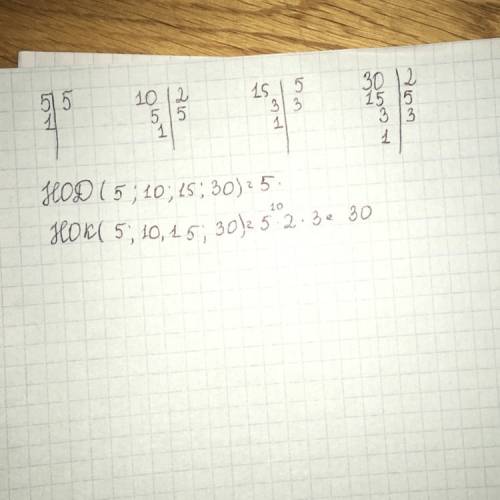 5 | 5
1 |
10 | 2
5 | 5
1 |
15 | 5
3 | 3
1 |
30 | 2
15 | 5
3 | 3
1 |
НОД ( 5 ; 10 ; 15 ; 30 ) = 5.
10
НОК ( 5 ; 10, 15 ; 30 ) = 5 · 2 · 3 = 30